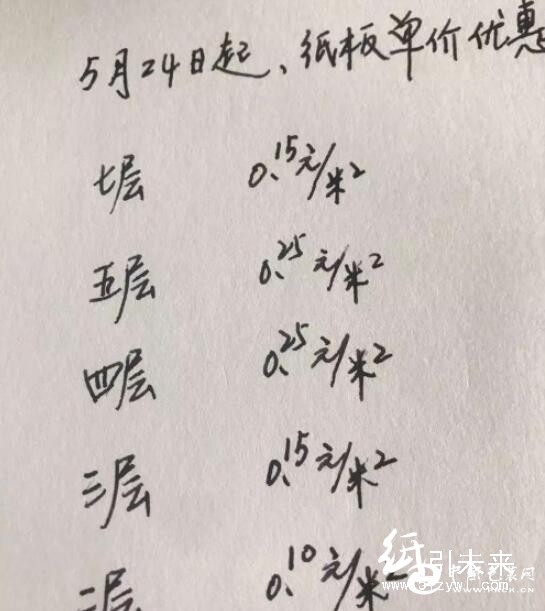 5月24日起、纸板单价优惠
七层 0.15元/米²
五层 0.25元/米²
四层 0.25元/米²
三层 0.15元/米²
二层 0.10元/米²
纸引未来